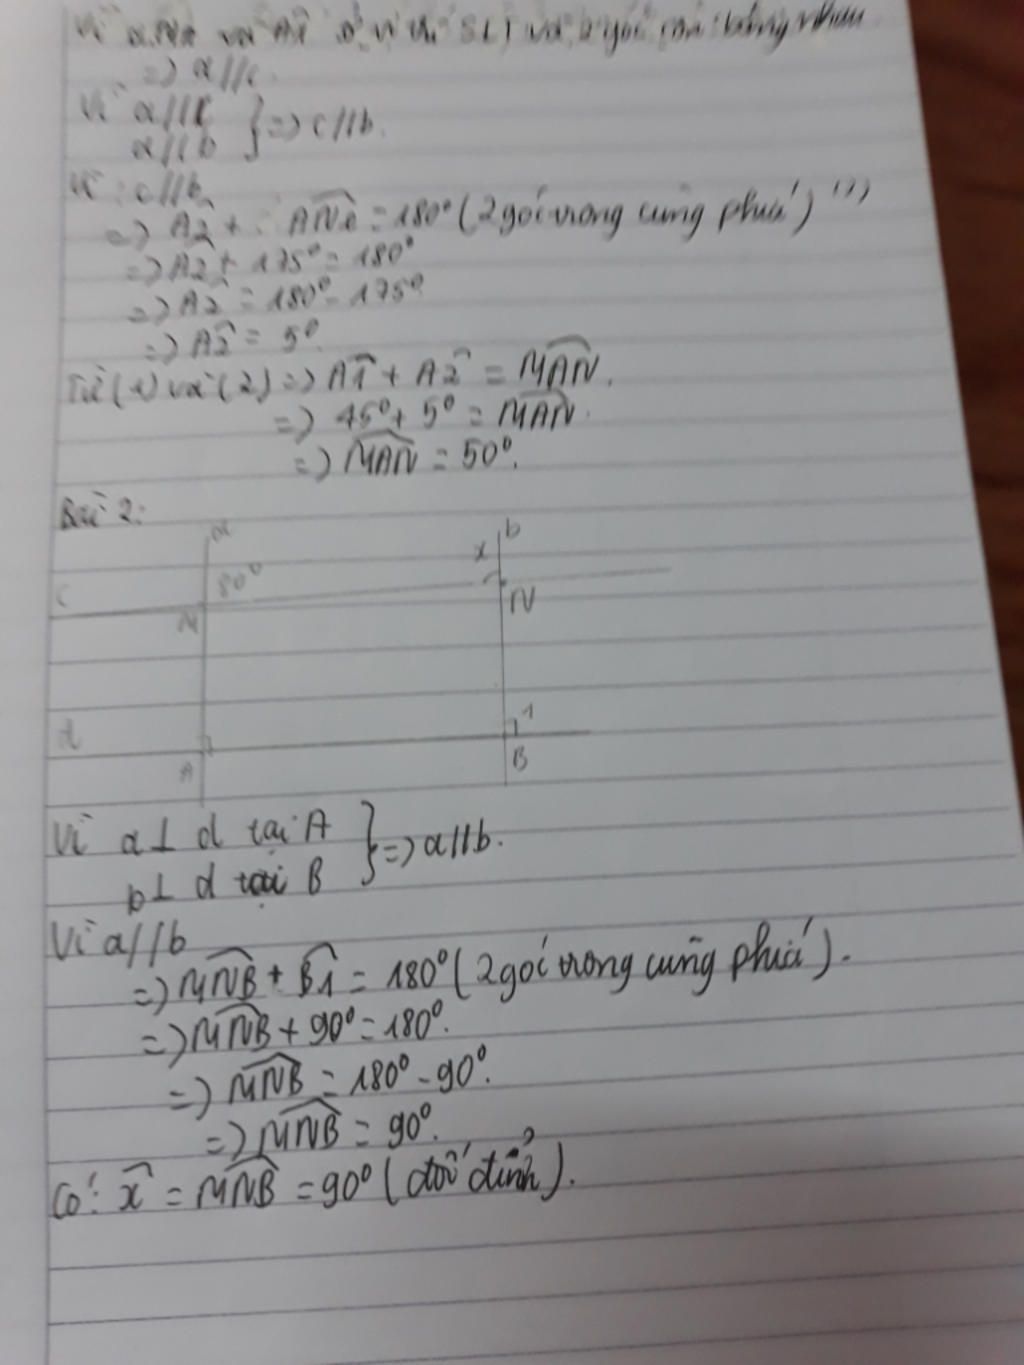 Vì và ở vị trí SLT và 2 góc bằng nhau
=> a//c.
Vì a//c
a//b } => c//b.
Vì: c//b
=> A2 + = 180° (2 góc trong cùng phía)
=> A2 + 175° = 180°
=> A2 = 180° - 175°
=> A2 = 5°
Từ (1) và (2) => A1 + A2 = MAN.
=> 45° + 5° = MAN.
=> MAN = 50°.
Bài 2:
a
b
x
c
80°
M
N
d
1
A
B
Vì a⊥ d tại A
b⊥ d tại B } => a//b.
Vì a//b
=> MNB + B1 = 180° (2 góc trong cùng phía).
=> MNB + 90° = 180°.
=> MNB = 180° - 90°.
=> MNB = 90°.
Có: x = MNB = 90° (đối đỉnh).